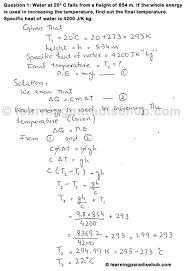 Question 1: Water at 20° C falls from a height of 854 m. If the whole energy
is used in increasing the temperature, find out the final temperature.
Specific heat of water is 4200 J/K kg.
Given that
T₁ = 20°C = 20+273 = 293K
height = h = 854m
Specific heat of water = 4200 JK⁻¹kg⁻¹
Final temperature = T₂ = ?
P.E = mgh — ①
Solution:
We know that
ΔQ = cmΔT — ②
is used in increasing the
temperature (Given)
From ① and ②
cmΔT = mgh
cΔT = gh
T₂ - T₁ = gh/c
T₂ = gh/c + T₁
= 9.8×854/4200 + 293
= 8369.2/4200 + 293 = 1.99 + 293
T₂ = 294.99K = 295-273°C
T₂ = 22°C
© learningparadisehub.com